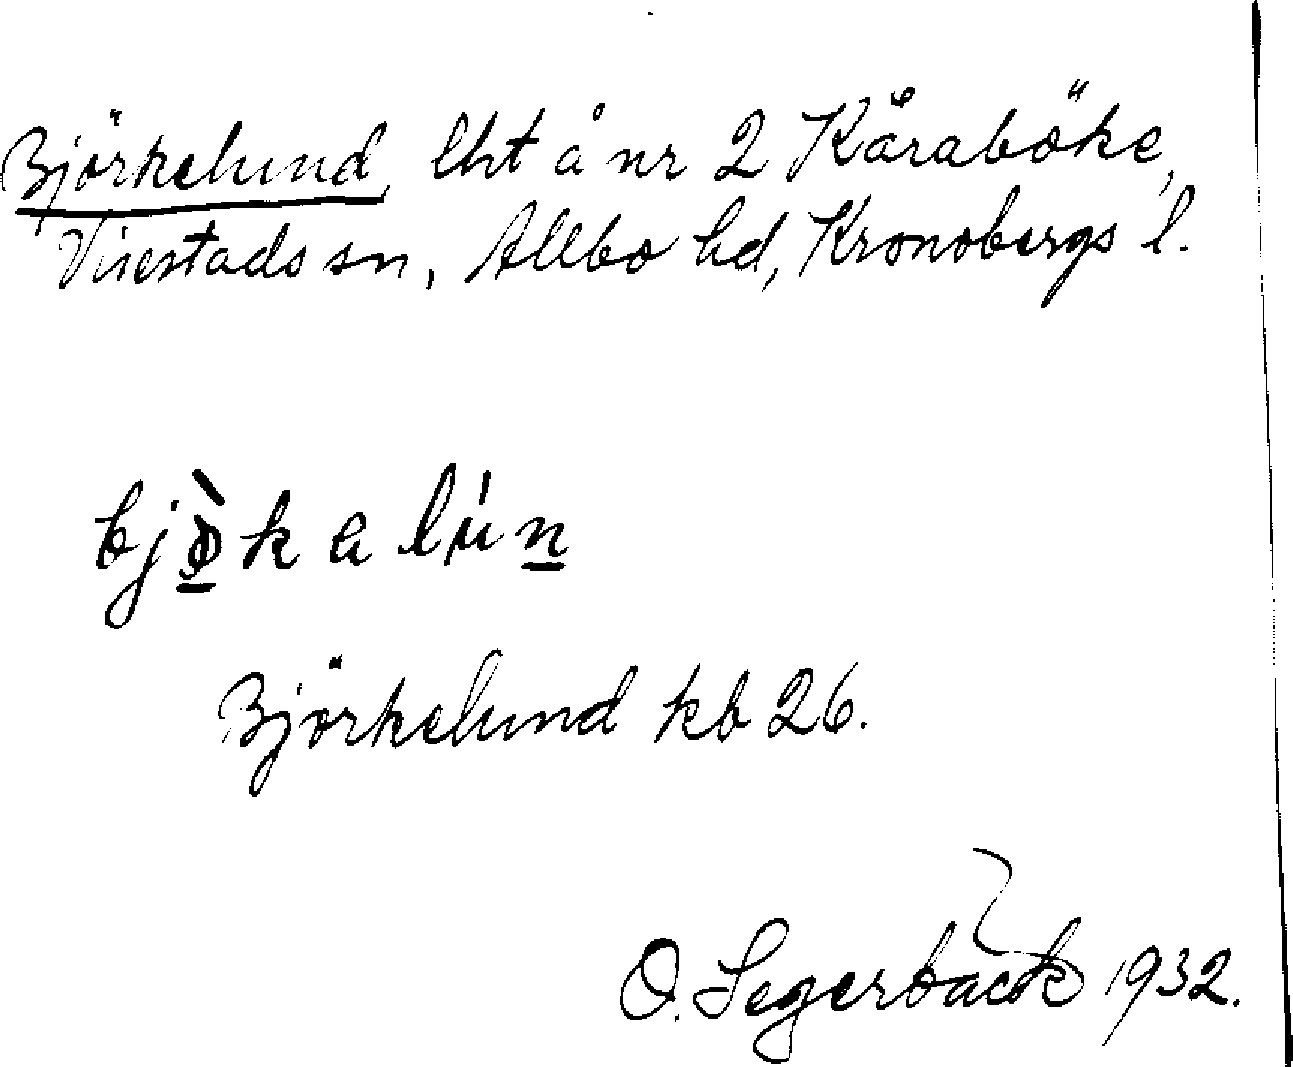 Björkelund, lht å nr 2 Kåraböke,
Virestads sn, Allbo hd, Kronobergs l.
bjö̀kɐlún
Björkelund kb 26.
O. Segerbäck 1932.